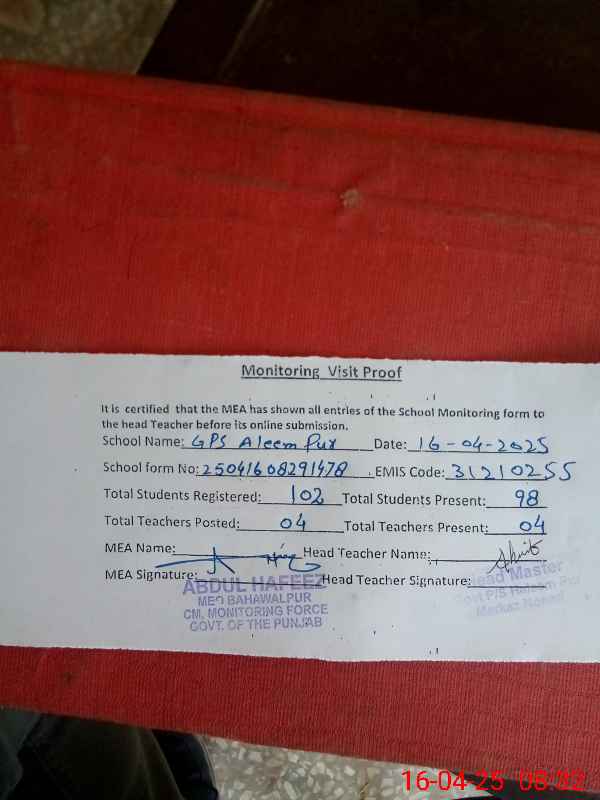 Monitoring Visit Proof
It is certified that the MEA has shown all entries of the School Monitoring form to
the head Teacher before its online submission.
School Name: GPS Aleem Pur Date: 16-04-2025
School form No: 25041608291478 .EMIS Code: 31210255
Total Students Registered: 102 Total Students Present: 98
Total Teachers Posted: 04 Total Teachers Present: 04
MEA Name: Head Teacher Name:
MEA Signature: Head Teacher Signature:
ABDUL HAFEEZ
MEO BAHAWALPUR
CM, MONITORING FORCE
GOVT. OF THE PUNJAB
Head Master
Govt P/S Pur
Markaz
16-04-25 08:32